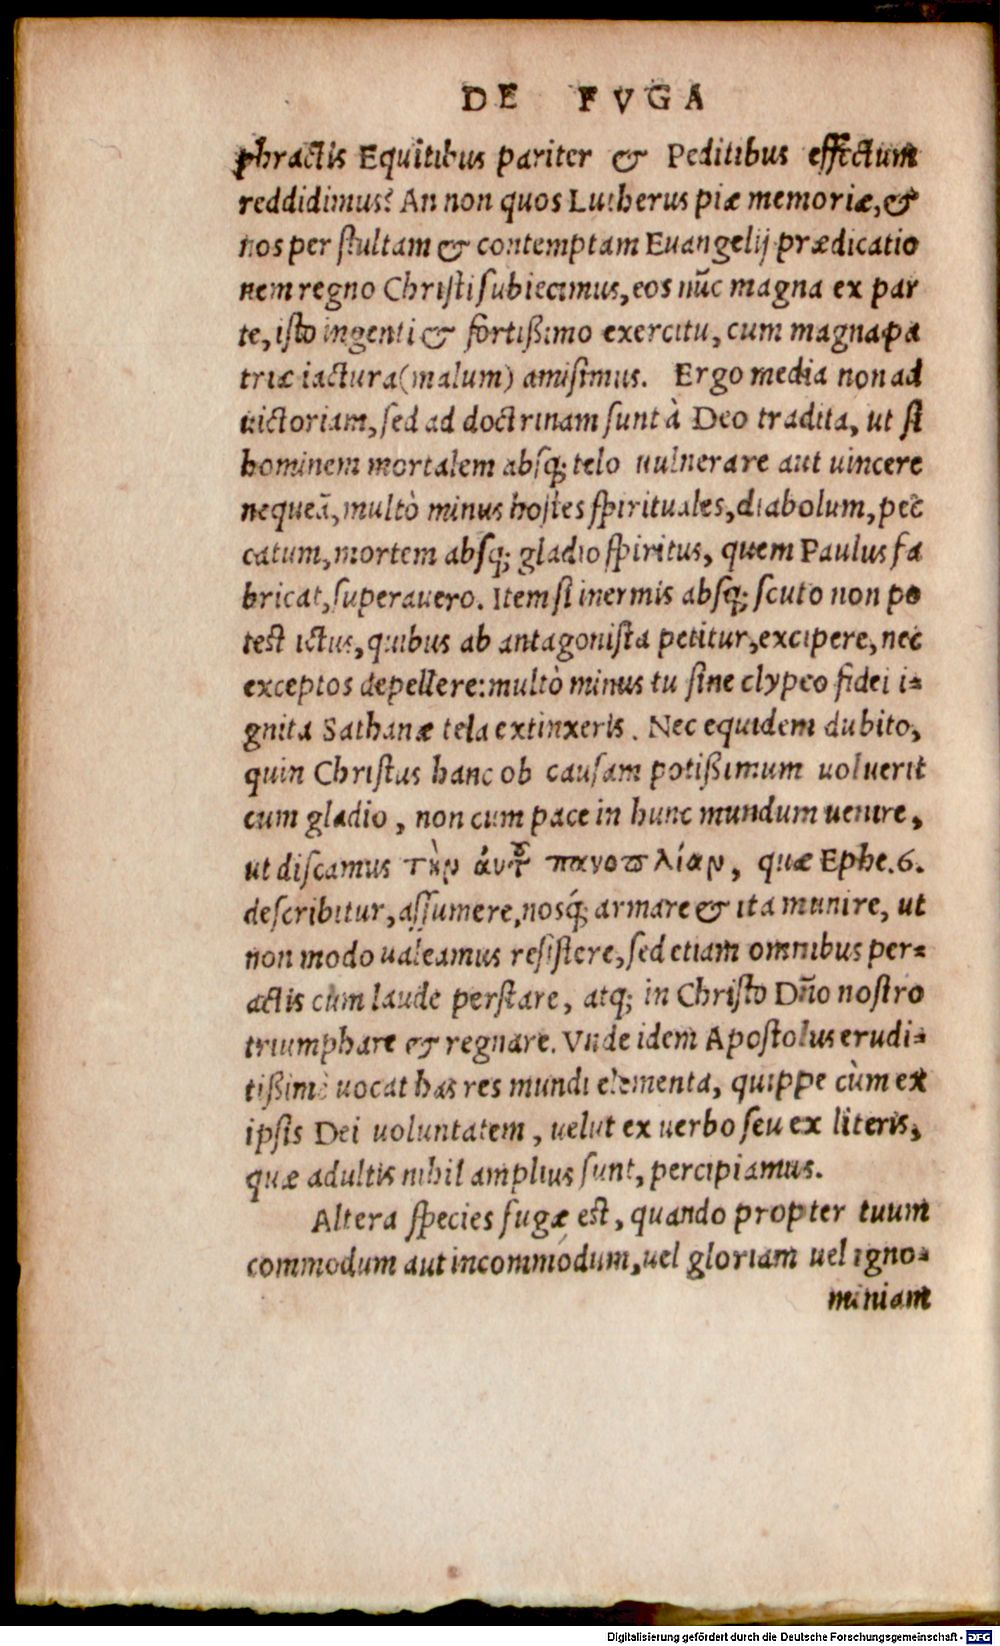 DE FVGA
phractis Equitibus pariter & Peditibus effectum
reddidimus? An non quos Lutherus piæ memoriæ, &
nos per stultam & contemptam Euangelij prædicatio
nem regno Christi subiecimus, eos nūc magna ex par
te, isto ingenti & fortißimo exercitu, cum magna pa
triæ iactura (malum) amisimus. Ergo media non ad
uictoriam, sed ad doctrinam sunt à Deo tradita, ut si
hominem mortalem absq; telo uulnerare aut uincere
nequeā, multò minus hostes spirituales, diabolum, pec
catum, mortem absq; gladio spiritus, quem Paulus fa
bricat, superauero. Item si inermis absq; scuto non po
test ictus, quibus ab antagonista petitur, excipere, nec
exceptos depellere: multò minus tu sine clypeo fidei i-
gnita Sathanæ tela extinxeris. Nec equidem dubito,
quin Christus hanc ob causam potißimum uoluerit
cum gladio, non cum pace in hunc mundum uenire,
ut discamus τὴν ἀυτȣ͂ πανοπλίαν, quæ Ephe. 6.
describitur, assumere, nosq́; armare & ita munire, ut
non modo ualeamus resistere, sed etiam omnibus per-
actis cum laude perstare, atq; in Christo Dño nostro
triumphare & regnare. Vnde idem Apostolus erudi-
tißimè uocat has res mundi elementa, quippe cùm ex
ipsis Dei uoluntatem, uelut ex uerbo seu ex literis,
quæ adultis nihil amplius sunt, percipiamus.
Altera species fugæ est, quando propter tuum
commodum aut incommodum, uel gloriam uel igno-
miniam
Digitalisierung gefördert durch die Deutsche Forschungsgemeinschaft - DFG